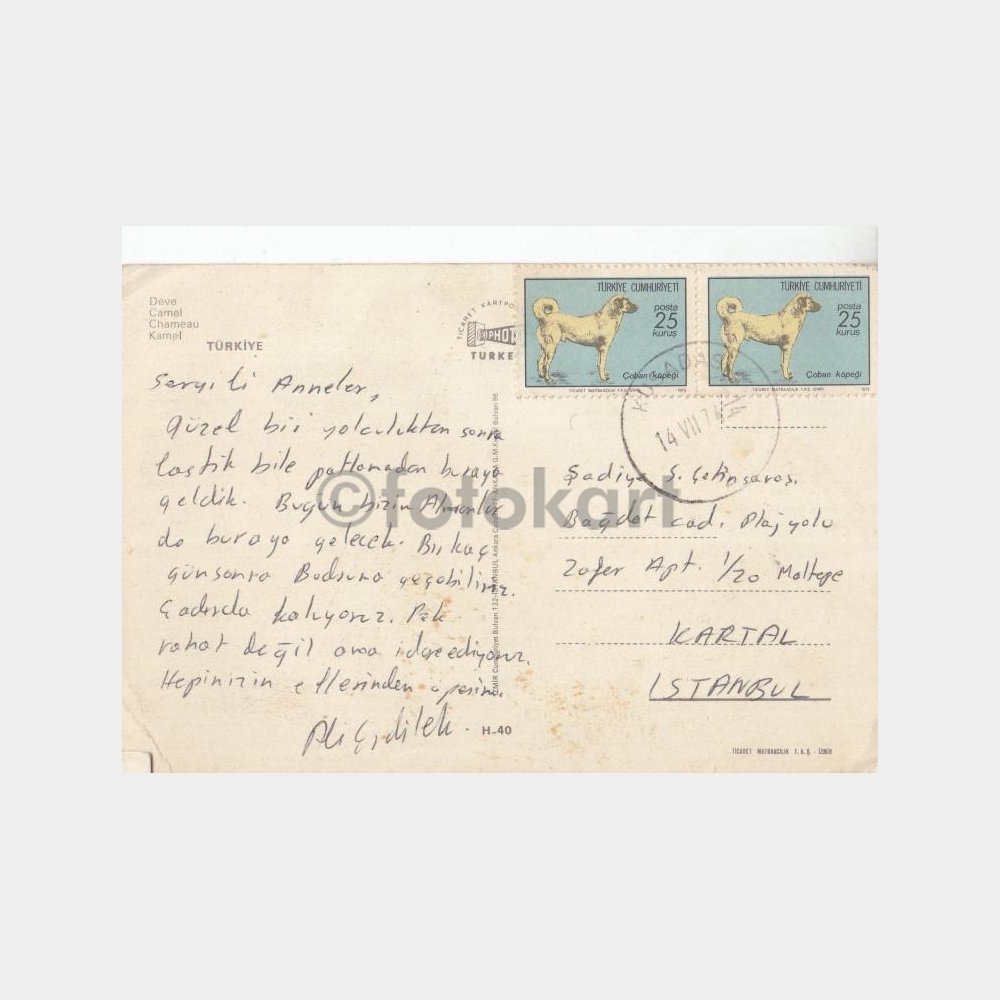 Deve
Camel
Chameau
Kamel
TÜRKİYE
TİCARET KARTPO
TURKE
TÜRKİYE CUMHURİYETİ
posta
25
kuruş
Çoban köpeği
TİCARET MATBAACILIK T.A.Ş. İZMİR 1973
TÜRKİYE CUMHURİYETİ
posta
25
kuruş
Çoban köpeği
TİCARET MATBAACILIK T.A.Ş. İZMİR 1973
14 VII 74
Sevgili Anneler,
Güzel bir yolculuktan sonra
lastik bile patlamadan buraya
geldik. Bugün bizim Almanlar
da buraya gelecek. Birkaç
gün sonra Bodruma geçebiliriz.
Çadırda kalıyoruz. Pek
rahat değil ama idare ediyoruz.
Hepinizin ellerinden öperim.
H-40
İZMİR Cumhuriyet Bulvarı 132-İSTANBUL Ankara Caddesi
Şadiye S. Çetinsaraş.
Bağdat cad. Plajyolu
Zafer Apt. 1/20 Maltepe
KARTAL
İSTANBUL
TİCARET MATBAACILIK T.A.Ş. - İZMİR
©fotokart